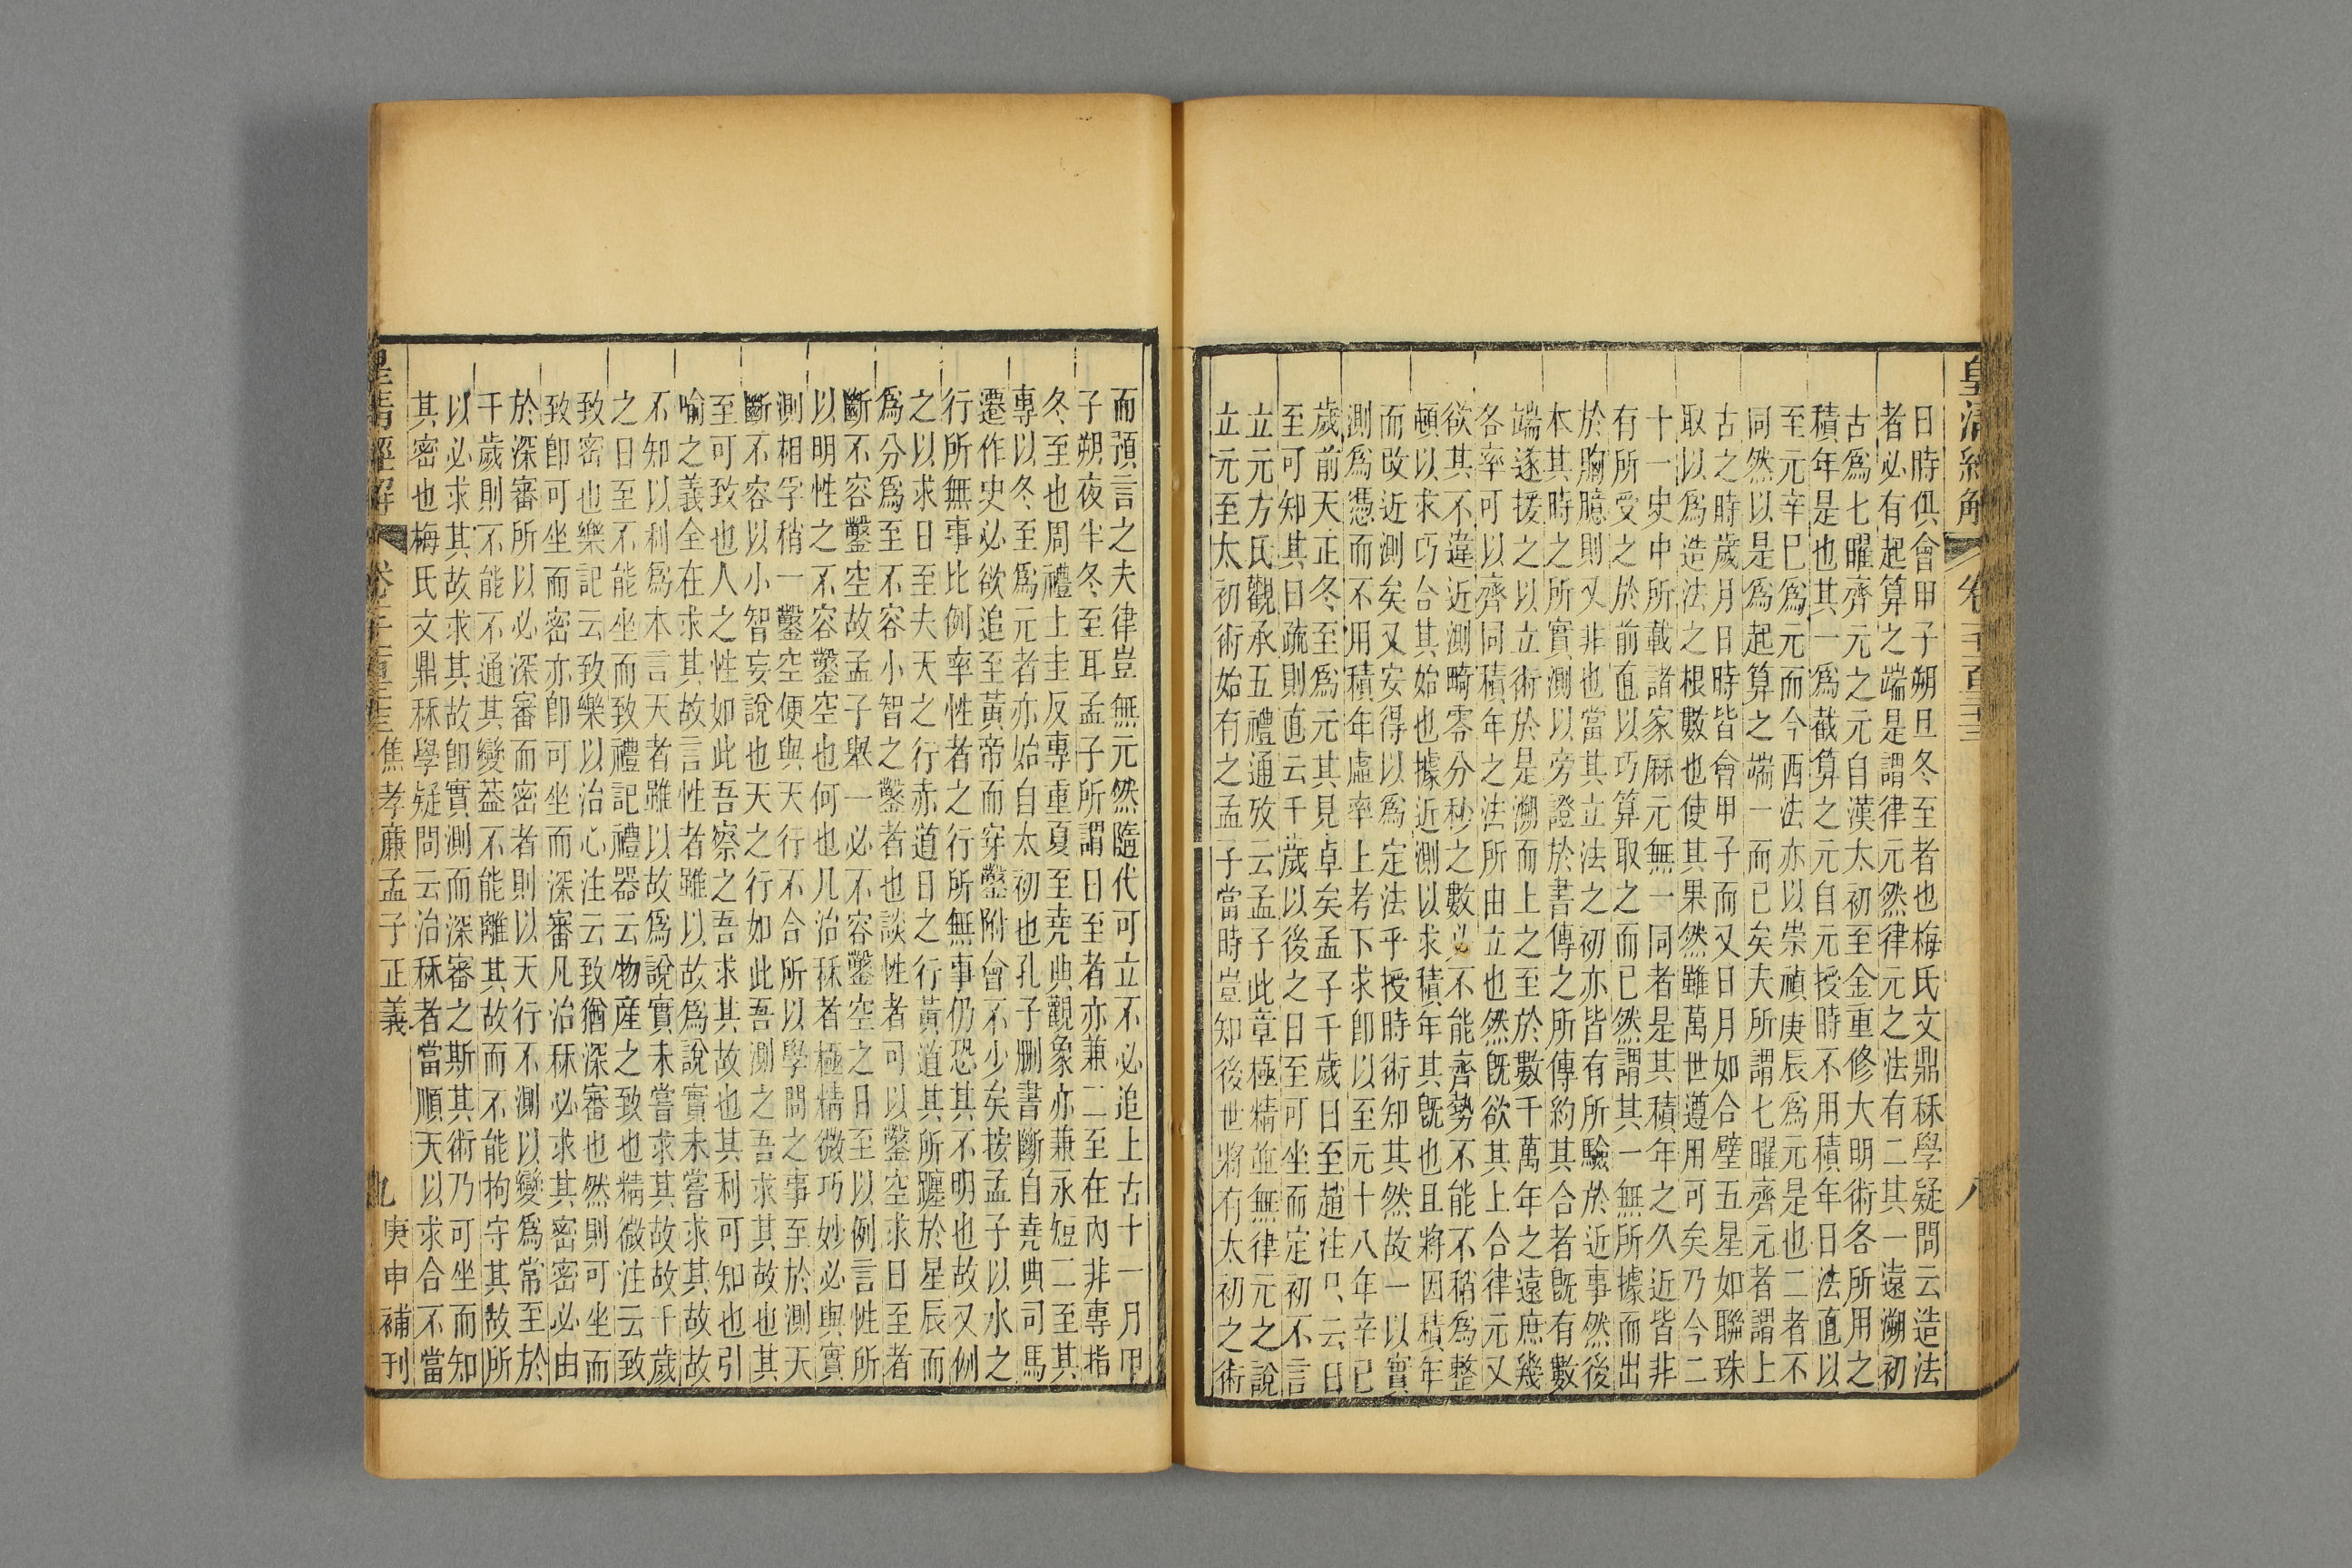 皇清經解 卷千百三十三 八
日時俱會甲子朔旦冬至者也梅氏文鼎秝學疑問云造法
者必有起算之端是謂律元然律元之法有二其一遠溯初
古爲七曜齊元之元自漢太初至金重修大明術各所用之
積年是也其一爲截算之元自元授時不用積年日法直以
至元辛巳爲元而今西法亦以崇禎庚辰爲元是也二者不
同然以是爲起算之端一而已矣夫所謂七曜齊元者謂上
古之時歲月日時皆會甲子而又日月如合璧五星如聯珠
取以爲造法之根數也使其果然雖萬世遵用可矣乃今二
十一史中所載諸家厤元無一同者是其積年之久近皆非
有所受之於前直以巧算取之而已然謂其一無所據而出
於胸臆則又非也當其立法之初亦皆有所驗於近事然後
本其時之所實測以旁證於書傳之所傳約其合者旣有數
端遂援之以立術於是溯而上之至於數千萬年之遠庶幾
各率可以齊同積年之法所由立也然旣欲其上合律元又
欲其不違近測畸零分秒之數必不能齊勢不能不稍爲整
頓以求巧合其始也據近測以求積年其旣也且將因積年
而改近測矣又安得以爲定法乎授時術知其然故一以實
測爲憑而不用積年虛率上考下求卽以至元十八年辛巳
歲前天正冬至爲元其見卓矣孟子千歲日至趙注只云日
至可知其日疏則直云千歲以後之日至可坐而定初不言
立元方氏觀承五禮通攷云孟子此章極精並無律元之說
立元至太初術始有之孟子當時豈知後世將有太初之術
而預言之夫律豈無元然隨代可立不必追上古十一月甲
子朔夜半冬至耳孟子所謂日至者亦兼二至在內非專指
冬至也周禮土圭反專重夏至堯典觀象亦兼永短二至其
專以冬至爲元者亦始自太初也孔子刪書斷自堯典司馬
遷作史必欲追至黃帝而穿鑿附會不少矣按孟子以水之
行所無事比例率性者之行所無事仍恐其不明也故又例
之以求日至夫天之行赤道日之行黃道其所躔於星辰而
爲分爲至不容小智之鑿者也談性者可以鑿空求日至者
斷不容鑿空故孟子舉一必不容鑿空之日至以例言性所
以明性之不容鑿空也何也凡治秝者極精微巧妙必與實
測相孚稍一鑿空便與天行不合所以學問之事至於測天
斷不容以小智妄說也天之行如此吾測之吾求其故也其
至可致也人之性如此吾察之吾求其故也其利可知也引
喻之義全在求其故言性者雖以故爲說實未嘗求其故故
不知以利爲本言天者雖以故爲說實未嘗求其故故千歲
之日至不能坐而致禮記禮器云物產之致也精微注云致
致密也樂記云致樂以治心注云致猶深審也然則可坐而
致卽可坐而密亦卽可坐而深審凡治秝必求其密密必由
於深審所以必深審而密者則以天行不測以變爲常至於
千歲則不能不通其變蓋不能離其故而不能拘守其故所
以必求其故求其故卽實測而深審之斯其術乃可坐而知
其密也梅氏文鼎秝學疑問云治秝者當順天以求合不當
皇清經解 焦孝廉孟子正義 九 庚申補刊